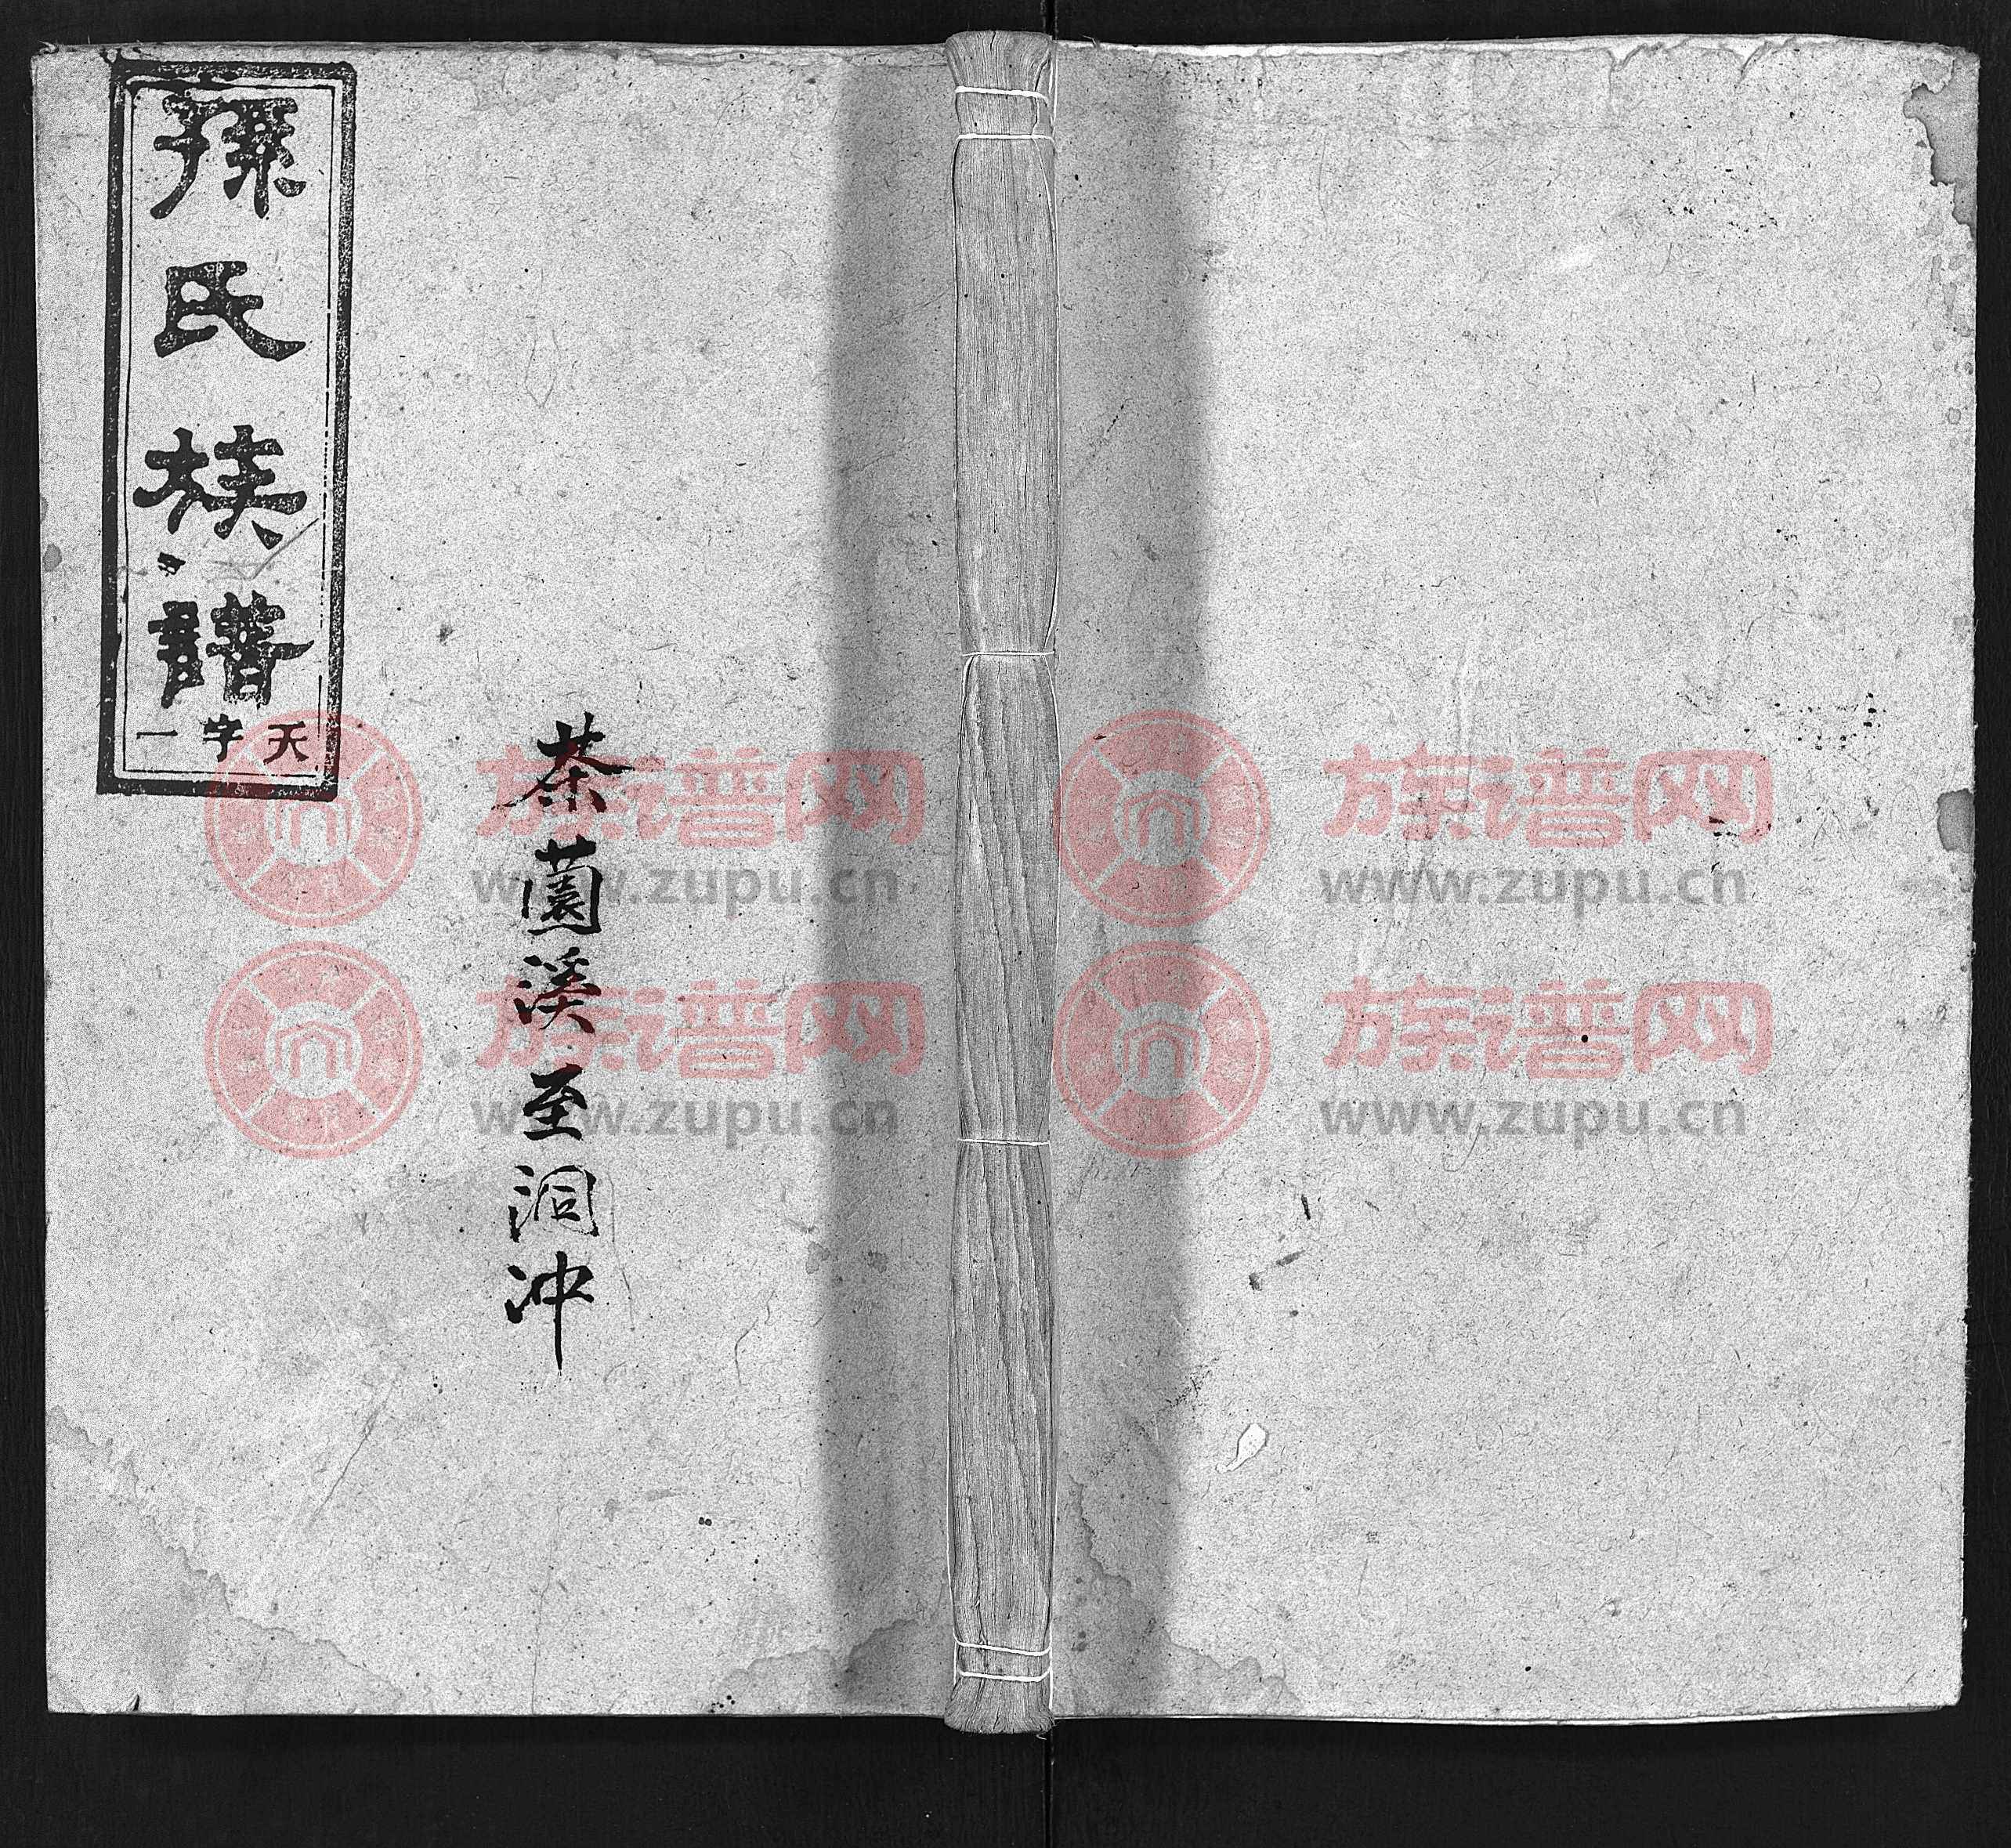 孫氏族譜
天字一
茶薗溪至洞冲
族谱网
www.zupu.cn
族谱网
www.zupu.cn
族谱网
www.zupu.cn
族谱网
www.zupu.cn